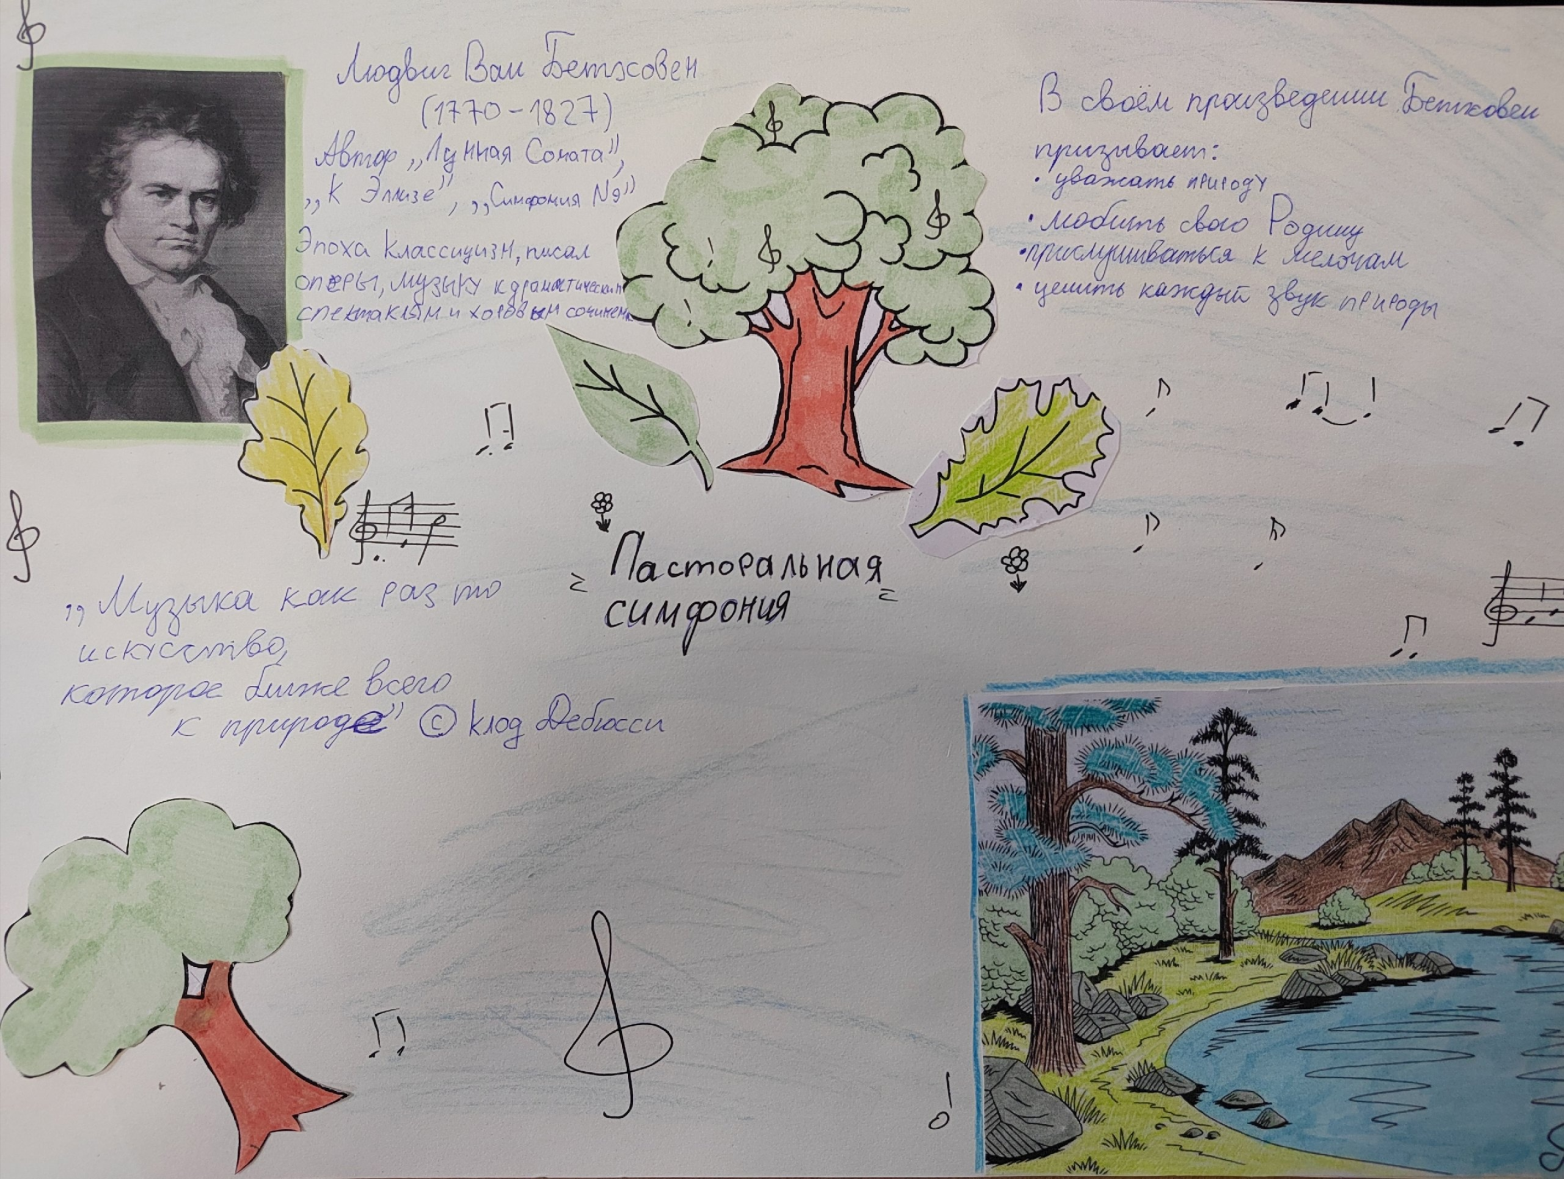 Людвиг Ван Бетховен
(1770-1827)
Автор „Лунная Соната",
„К Элизе", „Симфония №9"
Эпоха классицизм, писал
оперы, музыку к драматическим
спектаклям и хоровым сочинен
В своём произведении Бетховен
призывает:
· уважать природу
· любить свою Родину
· прислушиваться к мелочам
· ценить каждый звук природы
Пасторальная
симфония
„Музыка как раз то
искусство,
которое ближе всего
к природе" © Клод Дебюсси